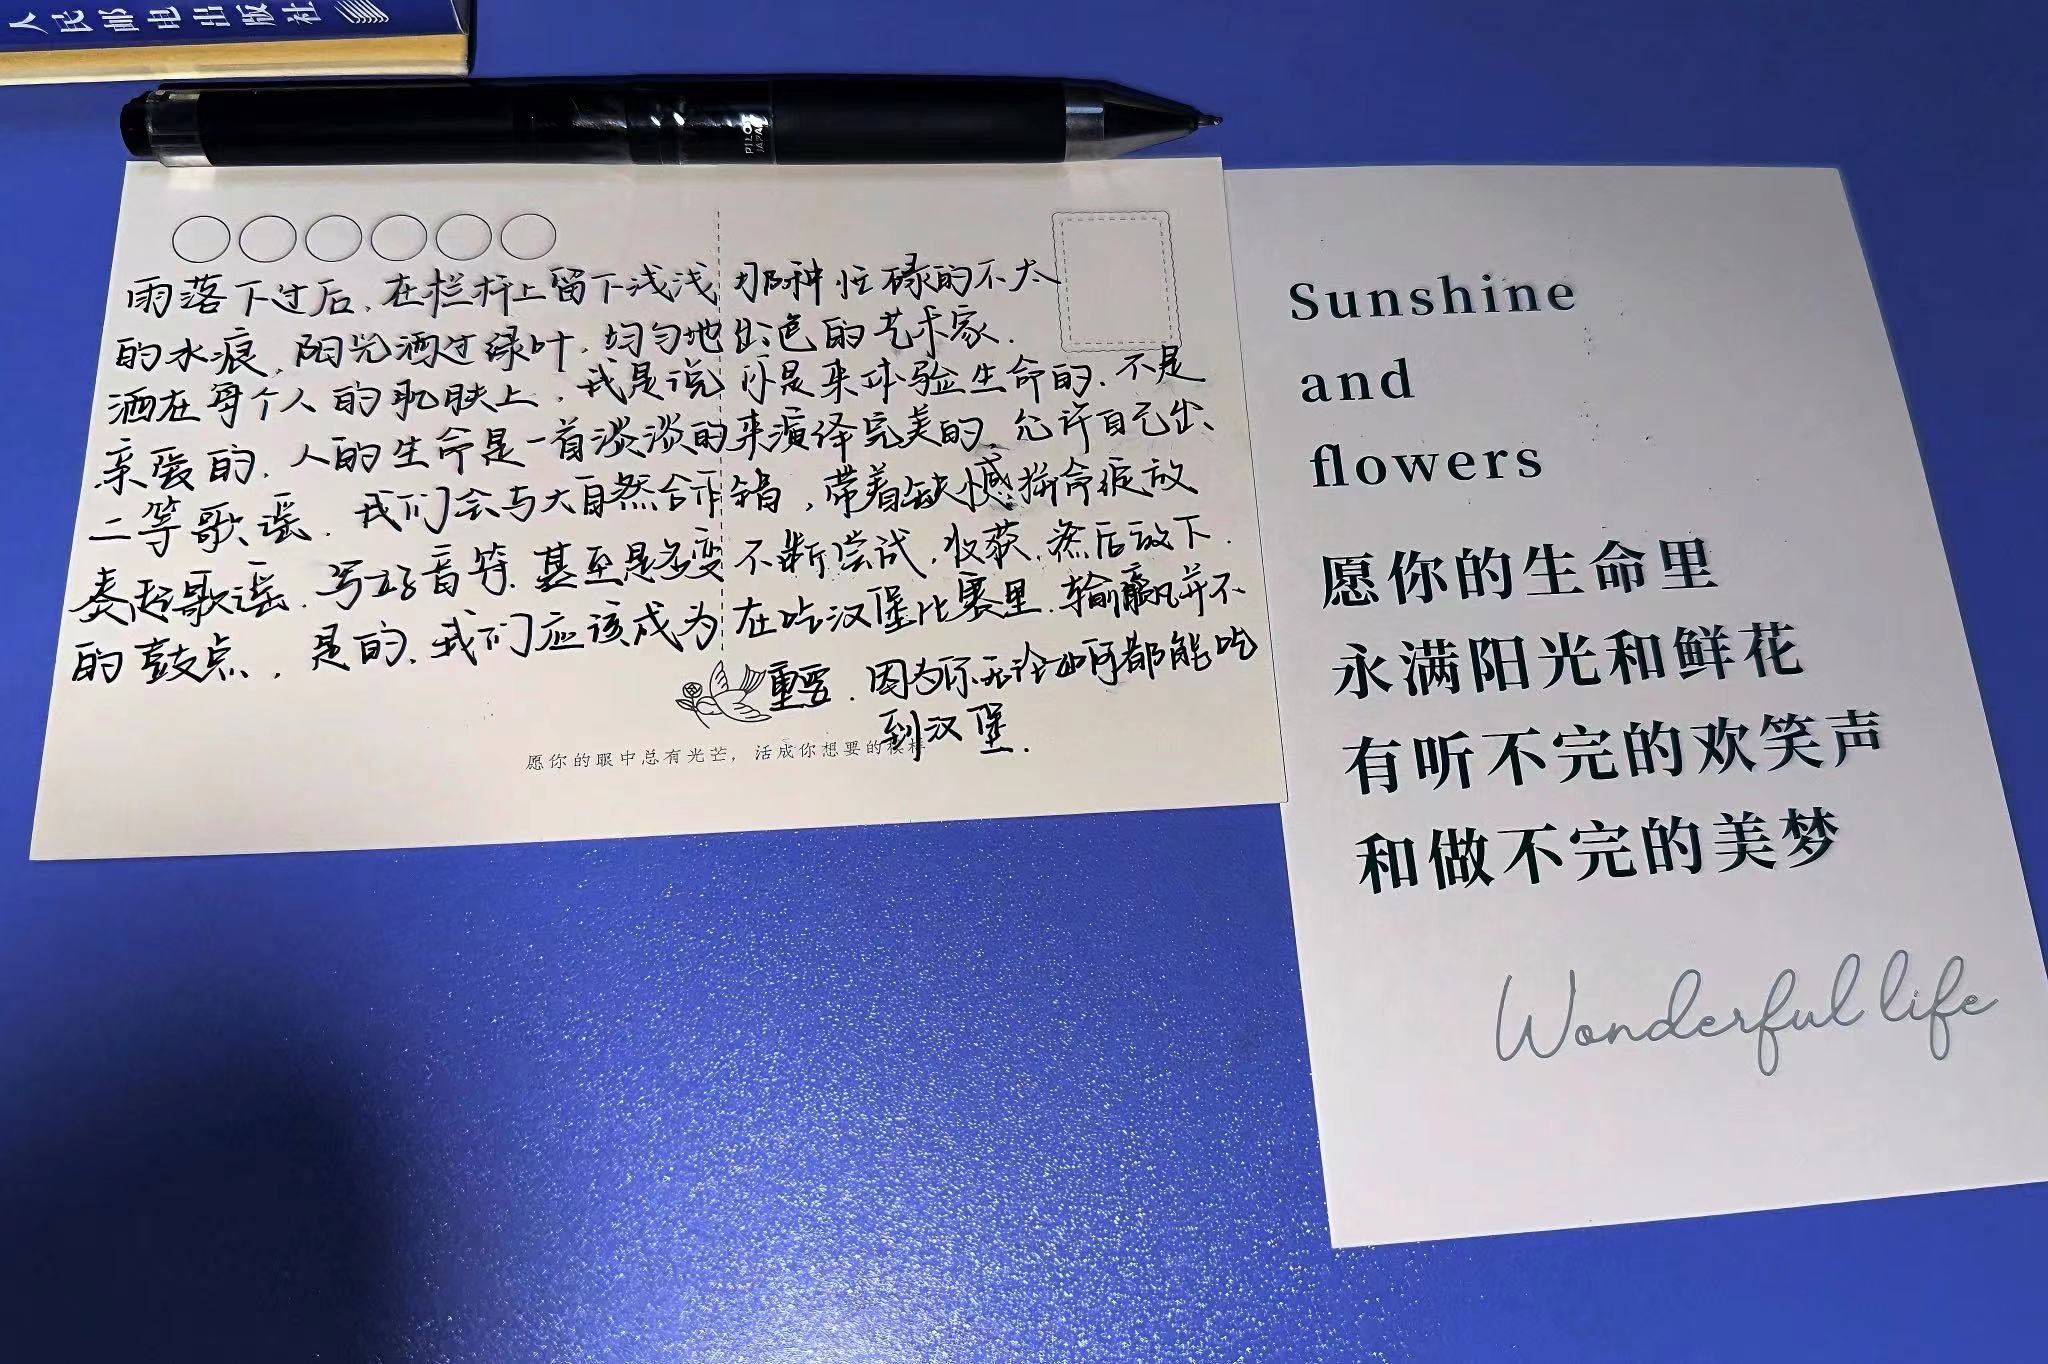 人民邮电出版社
PILOT
JAPAN
雨落下过后,在栏杆上留下浅浅
的水痕,阳光洒过绿叶,均匀地
洒在每个人的肌肤上,我是说
亲爱的,人的生命是一首淡淡的
二等歌谣.我们会与大自然合作
奏起歌谣.写好音符.甚至是多变
的鼓点,是的,我们应该成为
那种忙碌的不太
出色的艺术家.
你是来体验生命的.不是
来演绎完美的,允许自己出
错,带着缺憾拼命绽放
不断尝试,收获,然后放下.
在吃汉堡比赛里.输赢并不
重要.因为你无论如何都能吃
到汉堡.
愿你的眼中总有光芒,活成你想要的模样
Sunshine
and
flowers
愿你的生命里
永满阳光和鲜花
有听不完的欢笑声
和做不完的美梦
Wonderful life